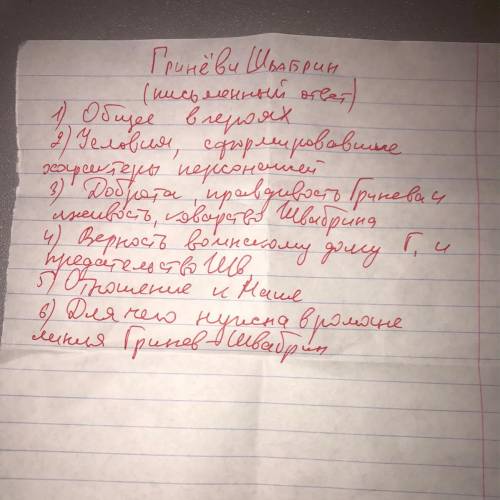 Гринёв и Швабрин
(письменный ответ)
1) Общее в героях
2) Условия, сформировавшие
характеры персонажей
3) Доброта, правдивость Гринева и
лживость, коварство Швабрина
4) Верность воинскому долгу Г. и
предательство Шв.
5) Отношение к Маше
6) Для чего нужна в романе
линия Гринев-Швабрин